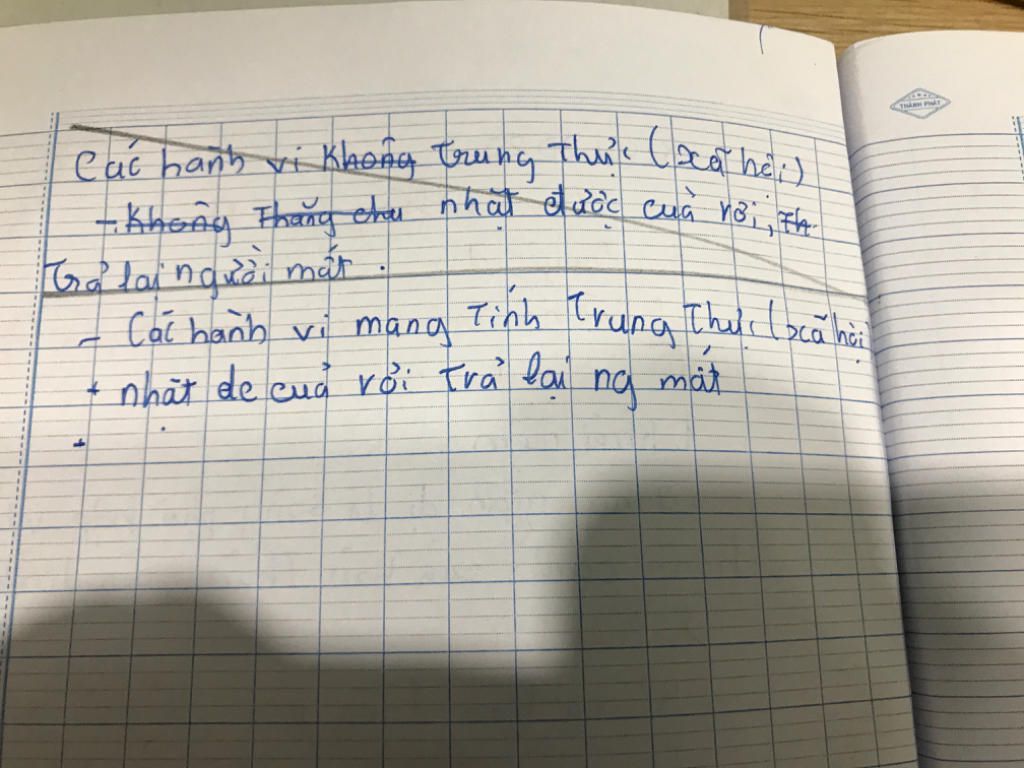 THÀNH PHÁT
Các hành vi không trung thực (xã hội)
- Không thẳng chu nhặt được của rơi, th
trả lại người mất.
- Các hành vi mang tính trung thực (xã hội
+ nhặt đc của rơi trả lại ng mất
+